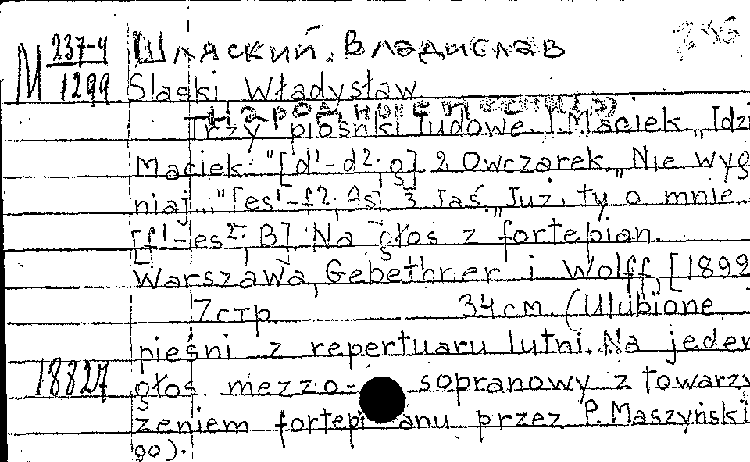 М 237-4/1299 Шляский, Владислав
Slaski Władysław
Trzy piosnki ludowe 1. Maciek „Idzi
Maciek..." [d¹-d²; g] 2 Owczarek „Nie wyg
niaj..." [es¹-f²; As] 3 Jaś „Już ty o mnie
[f¹-es²; B] Na głos z fortepian.
Warszawa, Gebethner i Wolff, [1892
7 стр 34 см (Ulubione
pieśni z repertuaru lutni. Na jeden
18827 głos mezzo-sopranowy z towarzy
szeniem fortepianu przez P. Maszyński
go).